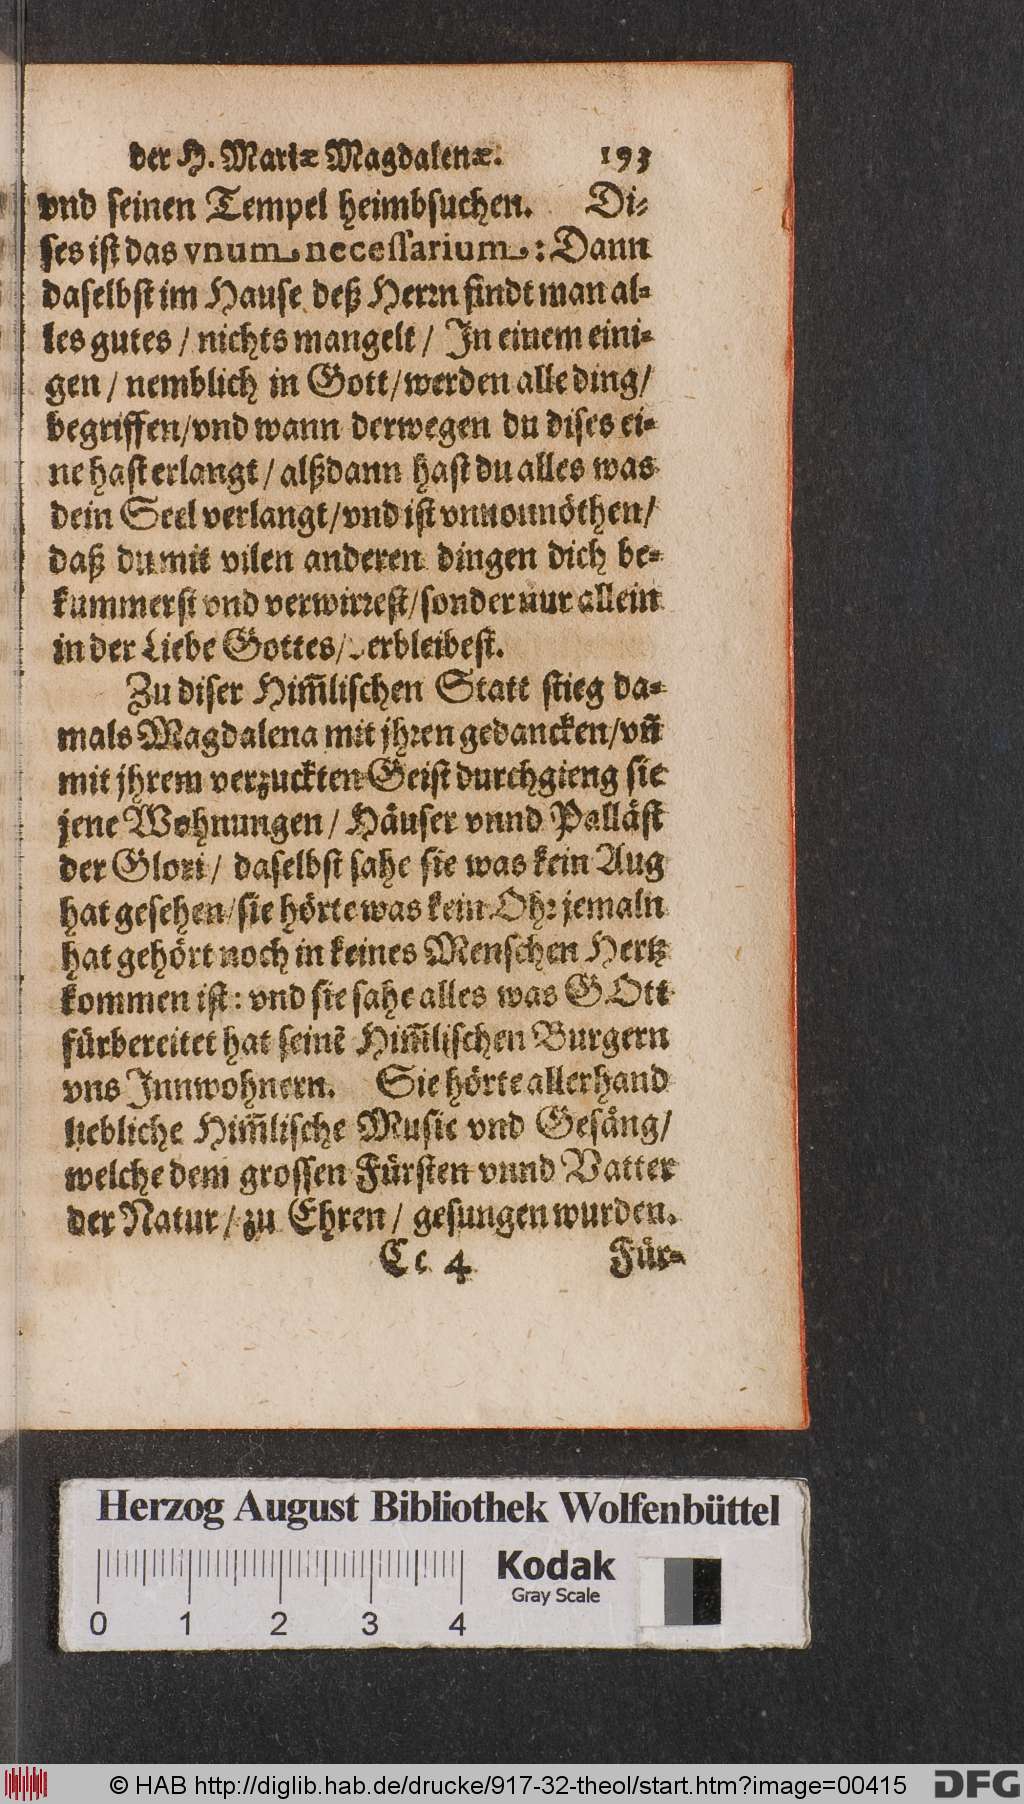 der H. Mariæ Magdalenæ. 193
vnd seinen Tempel heimbsuchen. Di-
ses ist das vnum necessarium: Dann
daselbst im Hause deß Herrn findt man al-
les gutes / nichts mangelt / In einem eini-
gen / nemblich in Gott/ werden alle ding/
begriffen/vnd wann derwegen du dises ei-
ne hast erlangt / alßdann hast du alles was
dein Seel verlangt/vnd ist vnuonnöthen/
daß du mit vilen anderen dingen dich be-
kummerst vnd verwirrest/sonder nur allein
in der Liebe Gottes/ verbleibest.
Zu diser Him̃lischen Statt stieg da-
mals Magdalena mit jhren gedancken/vñ
mit jhrem verzuckten Geist durchgieng sie
jene Wohnungen / Häuser vnnd Palläst
der Glori / daselbst sahe sie was kein Aug
hat gesehen/sie hörte was kein Ohr jemaln
hat gehört noch in keines Menschen Hertz
kommen ist: vnd sie sahe alles was GOtt
fürbereitet hat seinẽ Him̃lischen Burgern
vns Innwohnern. Sie hörte allerhand
liebliche Him̃lische Music vnd Gesäng/
welche dem grossen Fürsten vnnd Vatter
der Natur / zu Ehren / gesungen wurden.
Cc 4 Für-
Herzog August Bibliothek Wolfenbüttel
Kodak
Gray Scale
0 1 2 3 4
© HAB http://diglib.hab.de/drucke/917-32-theol/start.htm?image=00415 DFG